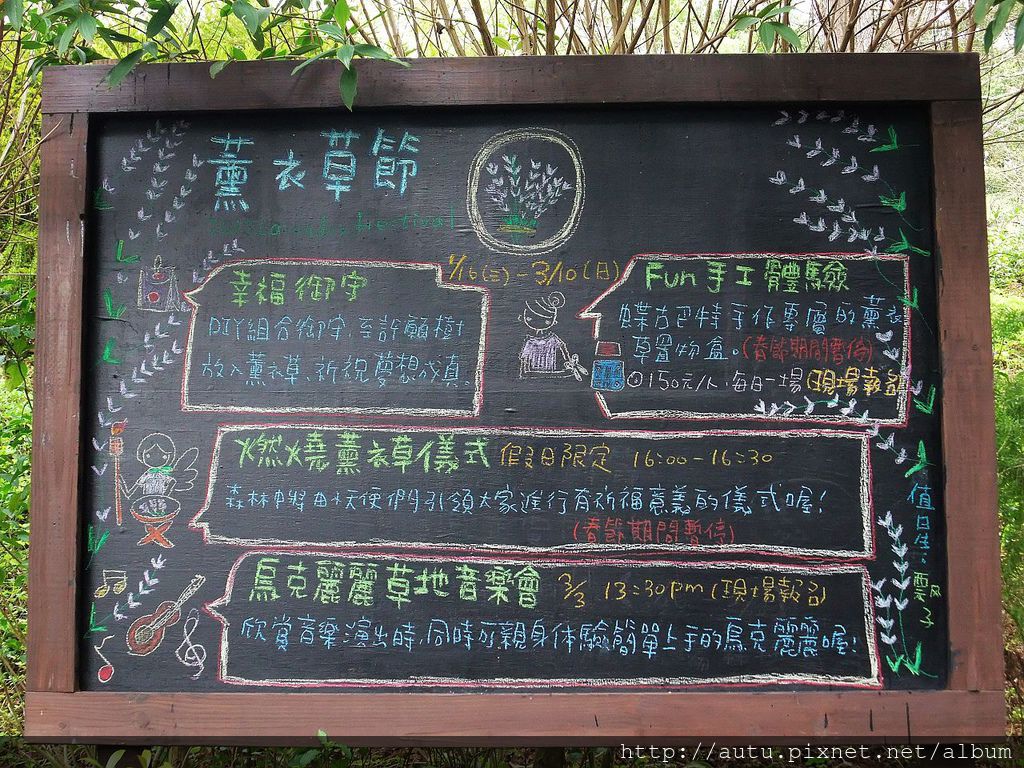 薰衣草節
Lavender Festival
1/16(三)-3/10(日)
幸福御守
DIY組合御守,至許願樹
放入薰衣草、祈祝夢想成真。
Fun手工體驗
蝶古巴特手作專屬的薰衣
草置物盒。(春節期間暫停)
150元/人、每日一場(現場報名)
燃燒薰衣草儀式 假日限定 16:00-16:30
森林中將由天使們引領大家進行有祈福意義的儀式喔!
(春節期間暫停)
烏克麗麗草地音樂會 3/3 13:30pm(現場報名)
欣賞音樂演出時,同時可親身体驗簡單上手的烏克麗麗喔!
值日生:
http://autu.pixnet.net/album